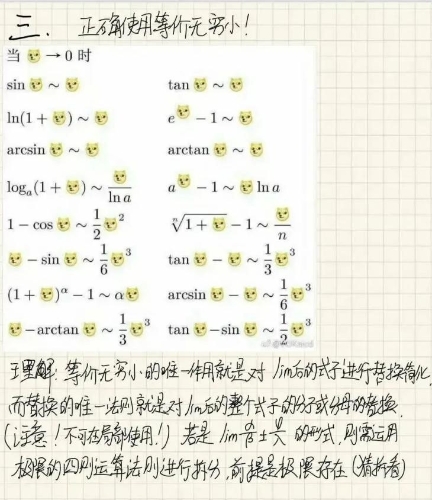 三. 正确使用等价无穷小!
当 🐱 → 0 时
sin 🐱 ~ 🐱 tan 🐱 ~ 🐱
ln(1 + 🐱) ~ 🐱 e^🐱 − 1 ~ 🐱
arcsin 🐱 ~ 🐱 arctan 🐱 ~ 🐱
log_a(1 + 🐱) ~ 🐱/ln a a^🐱 − 1 ~ 🐱 ln a
1 − cos 🐱 ~ 1/2 🐱² ⁿ√(1 + 🐱) − 1 ~ 🐱/n
🐱 − sin 🐱 ~ 1/6 🐱³ tan 🐱 − 🐱 ~ 1/3 🐱³
(1 + 🐱)^α − 1 ~ α🐱 arcsin 🐱 − 🐱 ~ 1/6 🐱³
🐱 − arctan 🐱 ~ 1/3 🐱³ tan 🐱 − sin 🐱 ~ 1/2 🐱³
理解: 等价无穷小的唯一作用就是对 lim后的式子进行替换简化,
而替换的唯一法则就是对lim后的整个式子的分子或分母的替换.
(注意!不可在局部使用!) 若是 lim ± 的形式, 则需运用
极限的四则运算法则进行拆分,前提是极限存在(猜拆看)